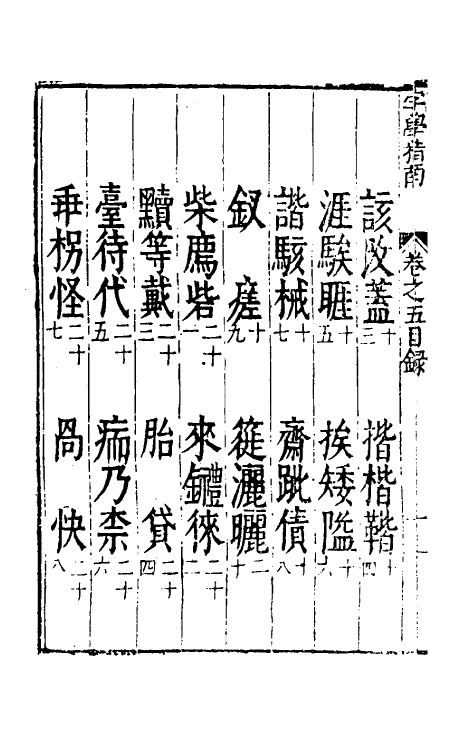 字學指南
卷之五目録
該改蓋十三 揩楷鞜十四
涯騃睚十五 挨矮隘十六
諧駭械十七 齋跐債十八
釵瘥十九 簁灑曬二十
柴廌砦二十一 來䚓徠二十二
䵃等戴二十三 胎貸二十四
臺待代二十五 㾍乃柰二十六
𠂹枴怪二十七 咼快二十八